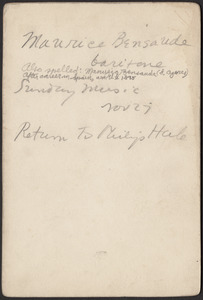 Maurice Bensaude
baritone
Also spelled: Maurizio Bensaude
Sunday Music
Nov 29
Return to Philip Hale